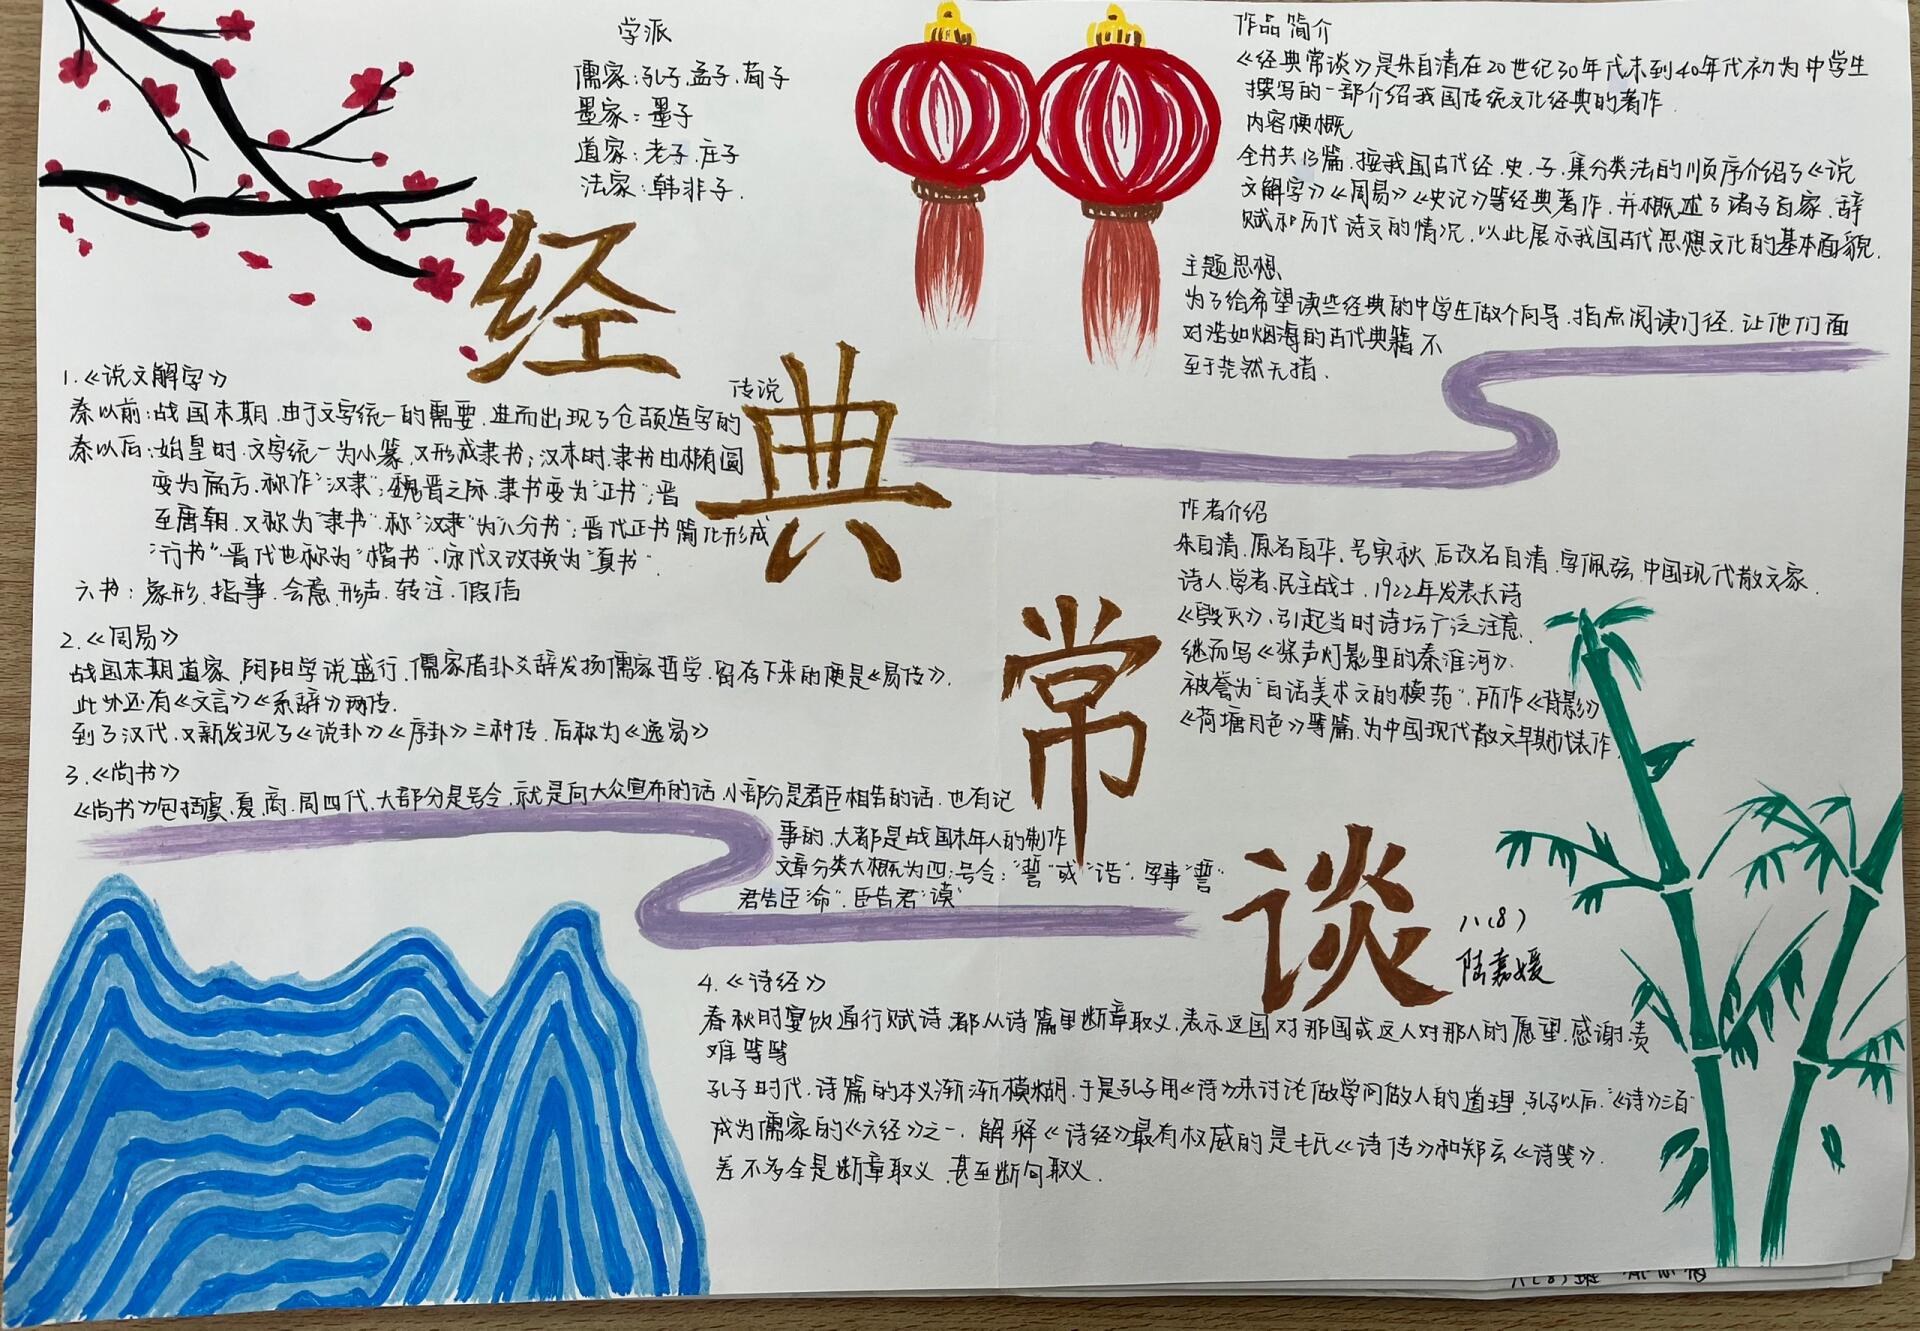 学派
儒家:孔子、孟子、荀子
墨家:墨子
道家:老子、庄子
法家:韩非子.
作品简介
《经典常谈》是朱自清在20世纪30年代末到40年代初为中学生
撰写的一部介绍我国传统文化经典的著作.
内容梗概
全书共13篇、按我国古代经、史、子、集分类法的顺序介绍了《说
文解字》《周易》《史记》等经典著作、并概述了诸子百家、辞
赋和历代诗文的情况、以此展示我国古代思想文化的基本面貌.
主题思想、
为了给希望读些经典的中学生做个向导、指点阅读门径、让他们面
对浩如烟海的古代典籍不
至于茫然无措.
经
典
常
谈
1.《说文解字》
秦以前:战国末期、由于文字统一的需要、进而出现了仓颉造字的
传说
秦以后:始皇时、文字统一为小篆、又形成隶书;汉末时、隶书由椭圆
变为扁方、称作“汉隶”;魏晋之际、隶书变为“正书”;晋
至唐朝、又称为“隶书”、称“汉隶”为“八分书”;晋代正书简化形成
“行书”、晋代也称为“楷书”、宋代又改换为“真书”.
六书:象形、指事、会意、形声、转注、假借
2.《周易》
战国末期道家、阴阳学说盛行、儒家借卦爻辞发扬儒家哲学、留存下来的便是《易传》.
此外还有《文言》《系辞》两传.
到了汉代、又新发现了《说卦》《序卦》三种传、后称为《逸易》
3.《尚书》
《尚书》包括虞、夏、商、周四代、大部分是号令、就是向大众宣布的话、小部分是君臣相告的话、也有记
事的、大都是战国末年人的制作
文章分类大概为四:号令:“誓”或“诰”、军事“誓”
君告臣“命”、臣告君“谟”
作者介绍
朱自清、原名自华、号实秋、后改名自清、字佩弦、中国现代散文家、
诗人、学者、民主战士、1922年发表长诗
《毁灭》、引起当时诗坛广泛注意、
继而写《桨声灯影里的秦淮河》、
被誉为“白话美术文的模范”、所作《背影》
《荷塘月色》等篇、为中国现代散文早期代表作
八(8)
陆嘉媛
4.《诗经》
春秋时宴饮通行赋诗、都从诗篇里断章取义、表示这国对那国或这人对那人的愿望、感谢、责
难等等
孔子时代、诗篇的本义渐渐模糊、于是孔子用《诗》来讨论做学问做人的道理、孔子以后、“《诗》三百”
成为儒家的《六经》之一、解释《诗经》最有权威的是毛氏《诗传》和郑玄《诗笺》.
差不多全是断章取义、甚至断句取义.